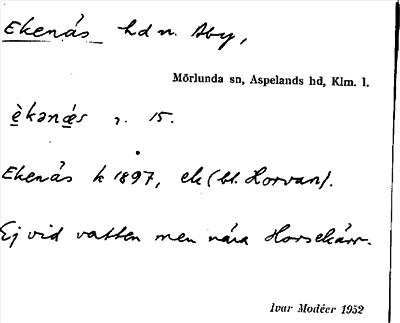 Ekenäs hd n. Åby,
Mörlunda sn, Aspelands hd, Klm. l.
è̱kənæ̱s 2. 15.
Ekenäs k 1897, ek (bl. Horvan).
Ej vid vatten men nära Horsekärr.
Ivar Modéer 1952